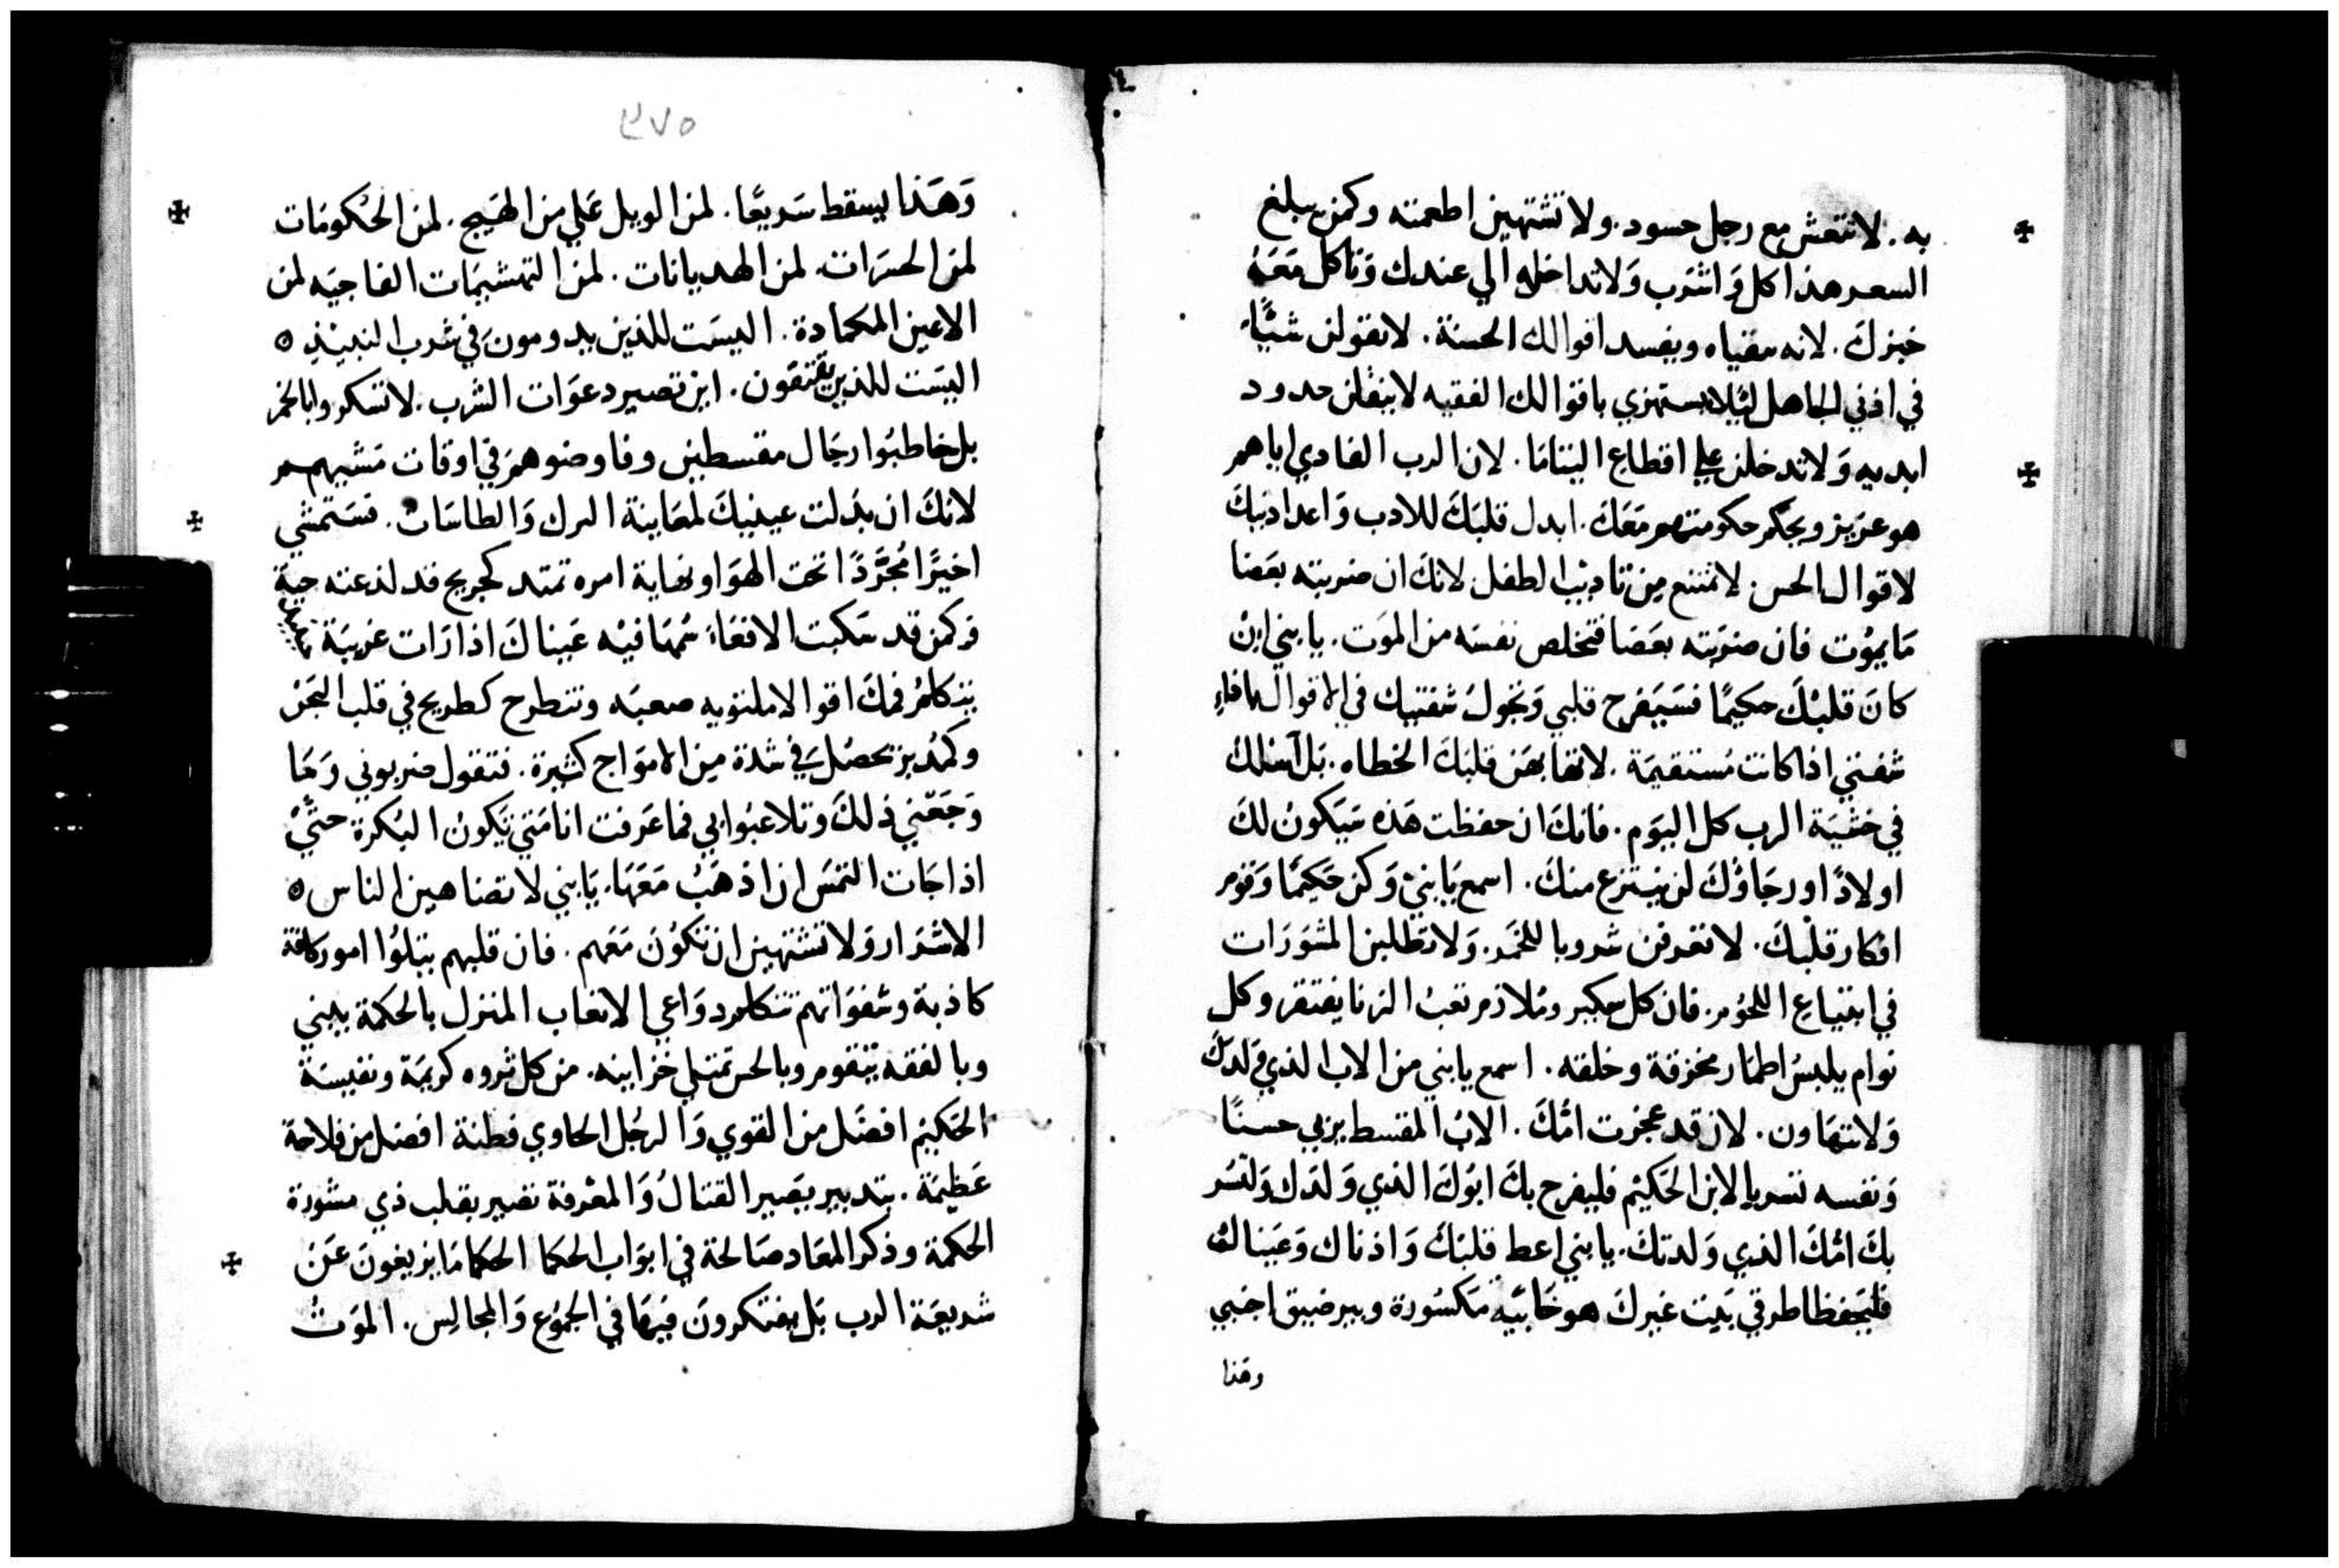 به. لا تتعش مع رجل حسود. ولا تشتهين اطعمته وكمن يبلغ
السعر هذا كل وَاشرَب وَلا تداخله الي عندك وَتاكل مَعَهُ
خبزكَ. لانه سقياه ويفسد اقوالك الحسنة. لا تقولن شيًّا
في اذني الجاهل ليًلا يستهزي باقوالك الفقيه لا ينقلن حدود
ابديه وَلا تدخلن علي اقطاع اليتامَا. لان الرب الفادي اياهم
هو عزيز ويحكم حكومتهم مَعَكَ. ابدل قلبَكَ للادب وَاعد اذنيكَ
لاقوال الحس. لا تمتنع مِن تاديبْ الطفل لانكَ ان ضربته بعَصَا
مَا يموُت فان ضرَبته بعَصَا فتخلص نفسَه من الموَت. يا بني ان
كانَ قلبْكَ حكيمًا فسَيَفرح قلبي وَتجولُ شفتيك في الاقوال ما فاءِ
شفتني اذا كانت مُستقيمَة. لا تها بهَن قلبَكَ الخطاه. بَل اسْلك
في خشيَة الرب كل اليَوم. فانكَ ان حفظت هَذه سَيَكونُ لكَ
اولادًا ورجَاؤكَ لن ينتزع منكَ. اسمع يَا بنيْ وَكن حَكيمًا وَقوم
افكار قلبْكَ. لا تعرفن شروبا للخمَر. وَلا تطلبن المشوَرَات
في ابتياع اللحوُم. فان كل سكير ومُلازم تعبُ الزنا يفتقر وكل
نوام يلبسُ اطمَار مخزقة وخلقه. اسمع يا بني من الاب الذي وَلدَكَ
وَلا تتهَاون. لان قد عجزت امُّكَ. الابُ المقسط يربي حسنًا
وَنفسه تسر بالابن الحَكيْم فليفرح بكَ ابوُكَ الذي وَلدَك وَلتسُر
بكَ امُّكَ الذي وَلدتكَ. يا بني اعط قلبَكَ وَاذناك وَعَيَناك
فليَحفظا طرقي بَيت غيركَ هو خَابيَه مَكسُورة وبير ضيق اجنبي
وهَذا
٣٧٥
وَهَذا يسقط سَريعًا. لمن الويل عَلي من الهَيج. لمن الحكومَات
لمن الحسرَات. لمن الهديانات. لمن التهشيمَات الفاجيَه لمن
الاعين المكمادة. اليسَت للذين يدومونَ في شرب النبيْذ ه
اليسَت للذين يَقتقون. اين تصير دعوَات الشرب. لا تسكروا بالخمر
بل خاطبُوا رجَال مقسطين وفاوضوهمَ في اوقات مَشيهم
لانكَ ان بذلت عينيكَ لمعَاينة البرك وَالطاسَات. فسَتمشي
اخيرًا مُجرَّدًا تحت الهوَا ونهاية امره تمتد كجريح قد لذعته حية
وَكمن قد سَكبت الافعَاء سُمهَا فيْه عَيناكَ اذا رَات غريبَة
يتكلمُ فمكَ اقوالا ملتويه صعبَه وتنطرح كطريح في قلب البَحْر
وكمُدبر تحصُل في شدة مِن الامَواج كثيرة. فتقول ضربوني وَمَا
وَجَعَني ذلكَ وتلاعبُوا بي فما عَرفت انا مَتي تَكونُ البُكرة حَتَّيْ
اذا جَات التمَس ان اذهَبُ مَعَهَا. يَا بني لا تضاهين الناس ه
الاشرَار وَلا تشتهين ان تكوُنَ مَعَهم. فان قلبهم يتلوُا امور كافة
كاذبة وشفوَاتهم تتكلم دوَاعي الاتعاب المنزل بالحكمة يبني
وبالفقه يتقوم وبالحس تمتلي خزاينه. من كل ثروه كريمَة ونفيسَة
الحَكيْم افضَل من القوي وَالرجُل الحاوي فطنة افضل من فلاحة
عَظيمَة. بتدبير يصَير القتالُ وَالمعْرفة تصير بقلب ذي مشورة
الحكمة وذكر المعَاد صَالحة في ابوَاب الحكما الحكما مَا يزيغونَ عَن
شريعَة الرب بَل يفتكرونَ فيهَا في الجموُع وَالمجالِس. الموَتُ